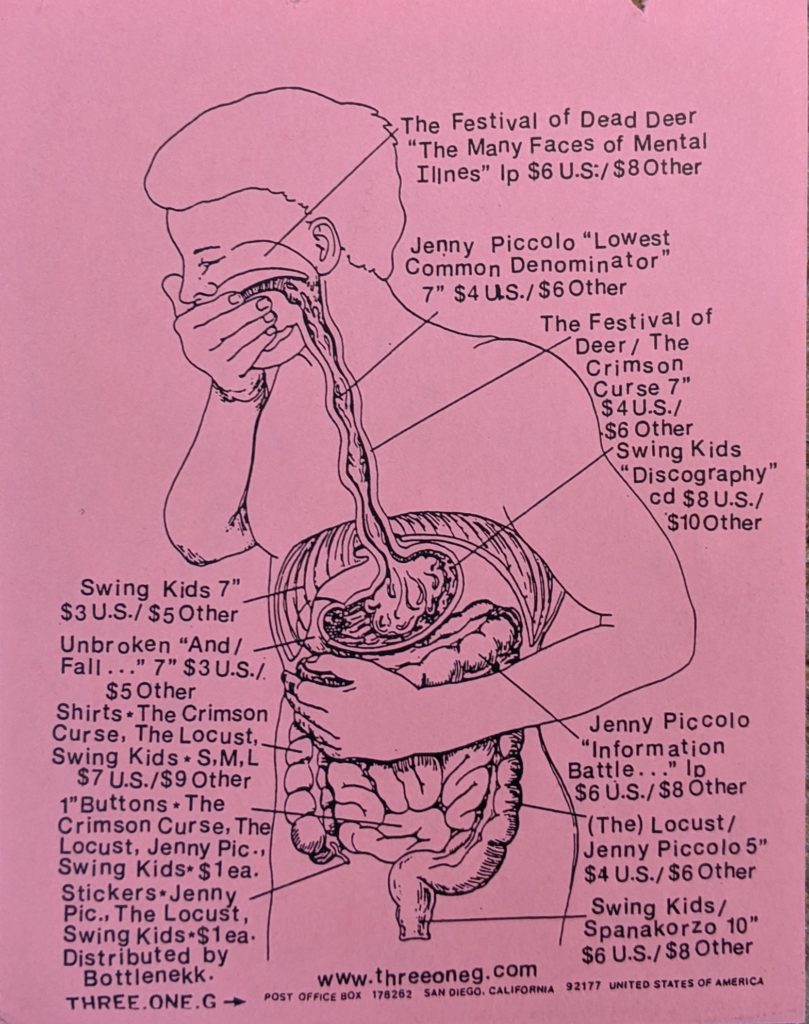 The Festival of Dead Deer
“The Many Faces of Mental
Illnes” lp $6 U.S./$8 Other
Jenny Piccolo “Lowest
Common Denominator”
7” $4 U.S./$6 Other
The Festival of
Deer/ The
Crimson
Curse 7”
$4 U.S./
$6 Other
Swing Kids
“Discography”
cd $8 U.S./
$10 Other
Swing Kids 7”
$3 U.S./$5 Other
Unbroken “And/
Fall...” 7” $3 U.S./
$5 Other
Shirts*The Crimson
Curse, The Locust,
Swing Kids*S,M,L
$7 U.S./$9 Other
1”Buttons*The
Crimson Curse, The
Locust, Jenny Pic.,
Swing Kids*$1 ea.
Stickers*Jenny
Pic., The Locust,
Swing Kids*$1 ea.
Distributed by
Bottlenekk.
THREE.ONE.G →
Jenny Piccolo
“Information
Battle...” lp
$6 U.S./$8 Other
(The) Locust/
Jenny Piccolo 5”
$4 U.S./$6 Other
Swing Kids/
Spanakorzo 10”
$6 U.S./$8 Other
www.threeoneg.com
POST OFFICE BOX 178262 SAN DIEGO, CALIFORNIA 92177 UNITED STATES OF AMERICA